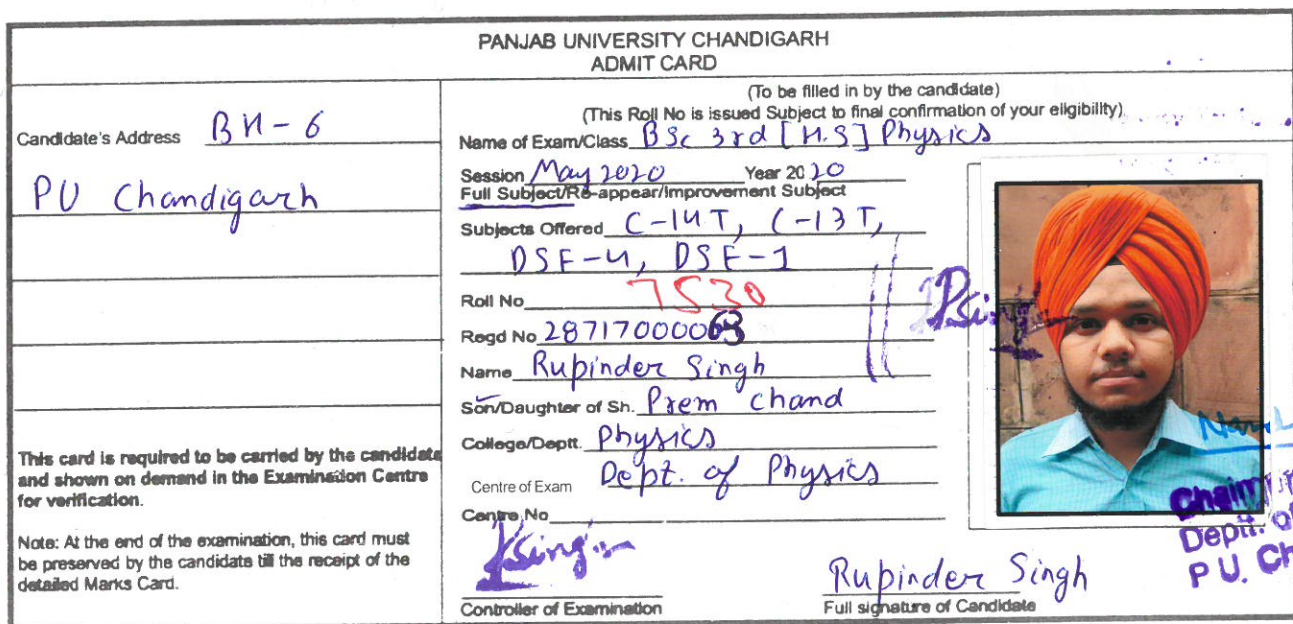 PANJAB UNIVERSITY CHANDIGARH
ADMIT CARD
Candidate's Address BH-6
PU Chandigarh
This card is required to be carried by the candidate
and shown on demand in the Examination Centre
for verification.
Note: At the end of the examination, this card must
be preserved by the candidate till the receipt of the
detailed Marks Card.
(To be filled in by the candidate)
(This Roll No is issued Subject to final confirmation of your eligibility)
Name of Exam/Class BSc 3rd [H.S] Physics
Session May 2020 Year 2020
Full Subject/Re-appear/Improvement Subject
Subjects Offered C-14T, C-13T,
DSE-4, DSE-1
Roll No 7530
Regd No 28717000063
Name Rupinder Singh
Son/Daughter of Sh. Prem Chand
College/Deptt. Physics
Centre of Exam Dept. of Physics
Centre No
Controller of Examination
Rupinder Singh
Full signature of Candidate
Deptt. of
P U. Ch